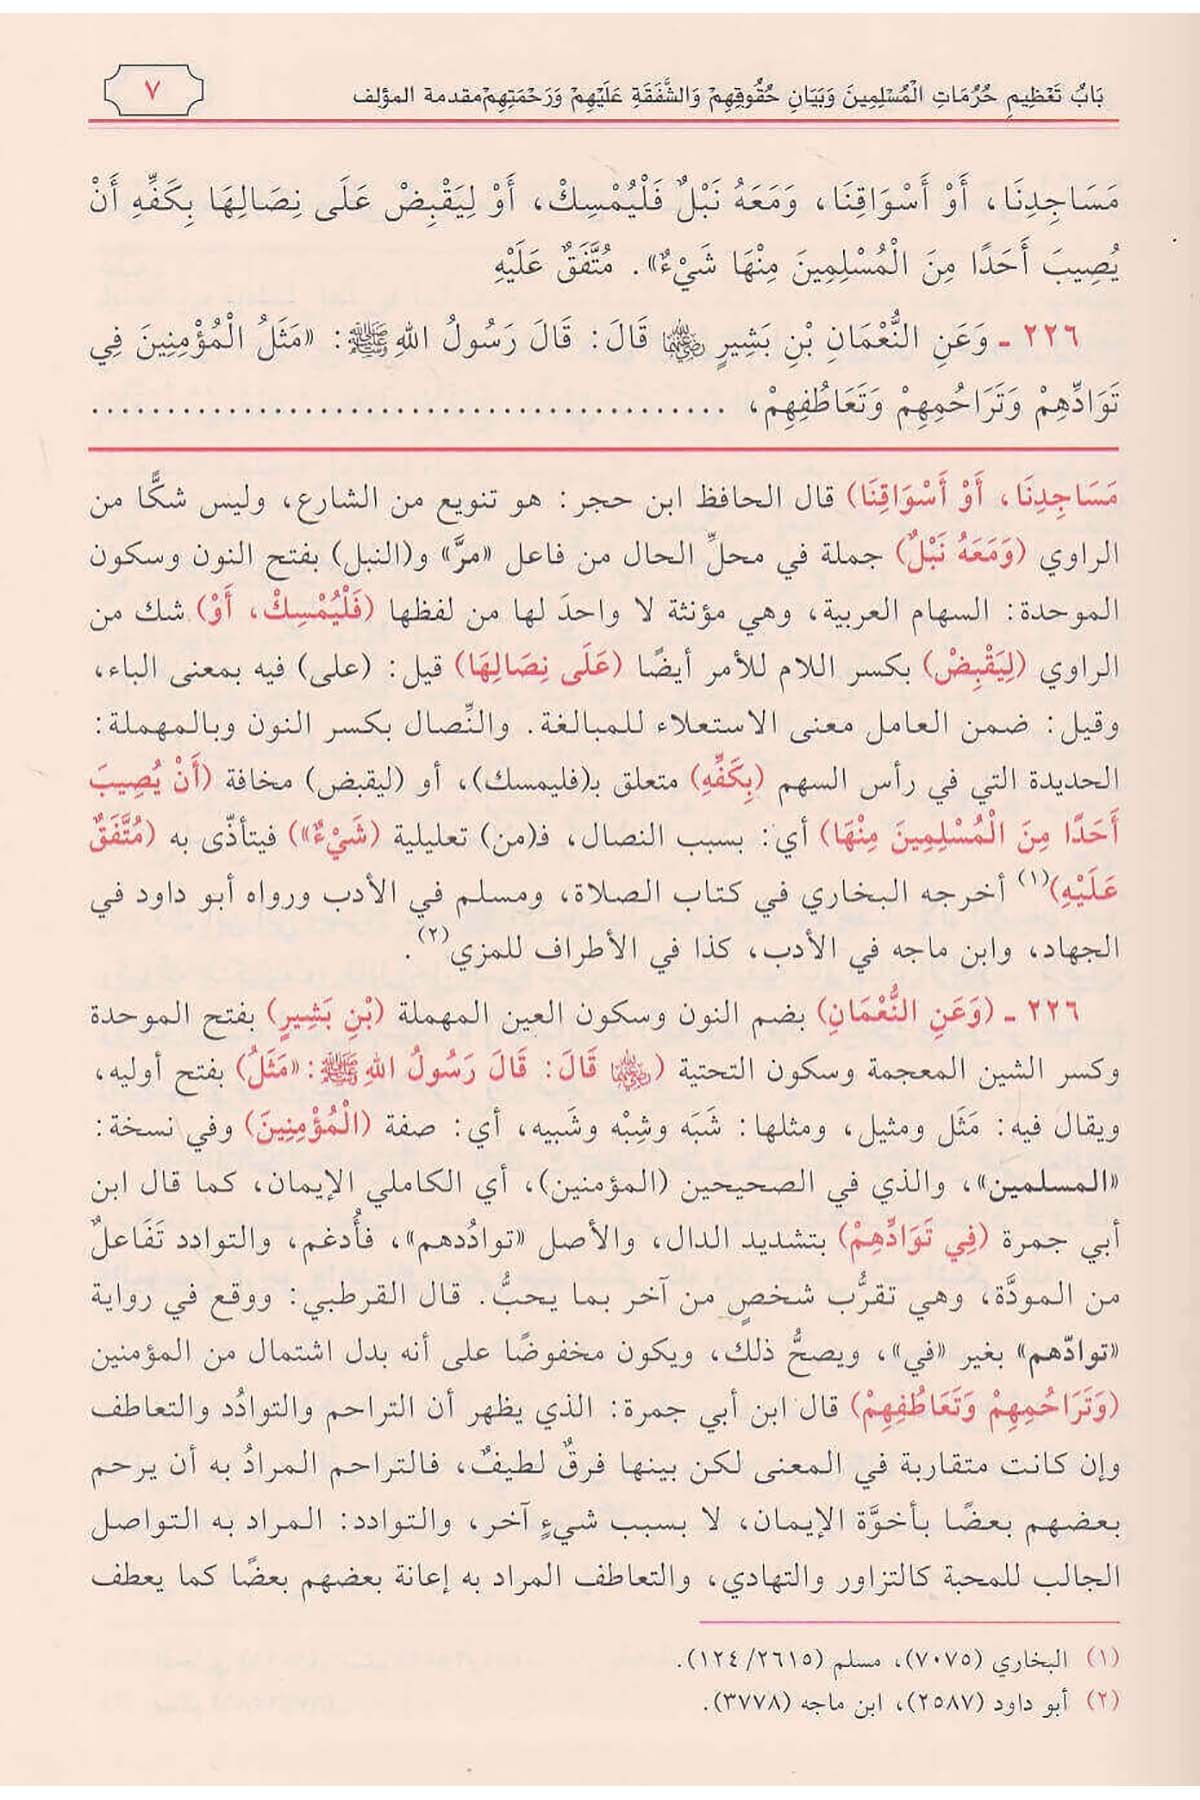 بَابُ تَعْظِيمِ حُرُمَاتِ الْمُسْلِمِينَ وَبَيَانِ حُقُوقِهِمْ وَالشَّفَقَةِ عَلَيْهِمْ وَرَحْمَتِهِمْ مقدمة المؤلف ٧
مَسَاجِدِنَا، أَوْ أَسْوَاقِنَا، وَمَعَهُ نَبْلٌ فَلْيُمْسِكْ، أَوْ لِيَقْبِضْ عَلَى نِصَالِهَا بِكَفِّهِ أَنْ
يُصِيبَ أَحَدًا مِنَ الْمُسْلِمِينَ مِنْهَا شَيْءٌ». مُتَّفَقٌ عَلَيْهِ
٢٢٦ - وَعَنِ النُّعْمَانِ بْنِ بَشِيرٍ رضي الله عنهما قَالَ: قَالَ رَسُولُ اللهِ ﷺ: «مَثَلُ الْمُؤْمِنِينَ فِي
تَوَادِّهِمْ وَتَرَاحُمِهِمْ وَتَعَاطُفِهِمْ، ..........................................
مَسَاجِدِنَا، أَوْ أَسْوَاقِنَا) قال الحافظ ابن حجر: هو تنويع من الشارع، وليس شكًّا من
الراوي (وَمَعَهُ نَبْلٌ) جملة في محلِّ الحال من فاعل «مرَّ» و(النبل) بفتح النون وسكون
الموحدة: السهام العربية، وهي مؤنثة لا واحدَ لها من لفظها (فَلْيُمْسِكْ، أَوْ) شك من
الراوي (لِيَقْبِضْ) بكسر اللام للأمر أيضًا (عَلَى نِصَالِهَا) قيل: (على) فيه بمعنى الباء،
وقيل: ضمن العامل معنى الاستعلاء للمبالغة. والنِّصال بكسر النون وبالمهملة:
الحديدة التي في رأس السهم (بِكَفِّهِ) متعلق بـ(فليمسك)، أو (ليقبض) مخافة (أَنْ يُصِيبَ
أَحَدًا مِنَ الْمُسْلِمِينَ مِنْهَا) أي: بسبب النصال، فـ(من) تعليلية (شَيْءٌ») فيتأذّى به (مُتَّفَقٌ
عَلَيْهِ)(١) أخرجه البخاري في كتاب الصلاة، ومسلم في الأدب ورواه أبو داود في
الجهاد، وابن ماجه في الأدب، كذا في الأطراف للمزي(٢).
٢٢٦ - (وَعَنِ النُّعْمَانِ) بضم النون وسكون العين المهملة (بْنِ بَشِيرٍ) بفتح الموحدة
وكسر الشين المعجمة وسكون التحتية (رضي الله عنهما قَالَ: قَالَ رَسُولُ اللهِ ﷺ: «مَثَلُ) بفتح أوليه،
ويقال فيه: مَثَل ومثيل، ومثلها: شَبَه وشِبْه وشَبيه، أي: صفة (الْمُؤْمِنِينَ) وفي نسخة:
«المسلمين»، والذي في الصحيحين (المؤمنين)، أي الكاملي الإيمان، كما قال ابن
أبي جمرة (فِي تَوَادِّهِمْ) بتشديد الدال، والأصل «توادُدهم»، فأُدغم، والتوادد تَفَاعلٌ
من المودَّة، وهي تقرُّب شخصٍ من آخر بما يحبُّ. قال القرطبي: ووقع في رواية
«توادّهم» بغير «في»، ويصحُّ ذلك، ويكون مخفوضًا على أنه بدل اشتمال من المؤمنين
(وَتَرَاحُمِهِمْ وَتَعَاطُفِهِمْ) قال ابن أبي جمرة: الذي يظهر أن التراحم والتوادُد والتعاطف
وإن كانت متقاربة في المعنى لكن بينها فرقٌ لطيفٌ، فالتراحم المرادُ به أن يرحم
بعضهم بعضًا بأخوَّة الإيمان، لا بسبب شيءٍ آخر، والتوادد: المراد به التواصل
الجالب للمحبة كالتزاور والتهادي، والتعاطف المراد به إعانة بعضهم بعضًا كما يعطف
(١) البخاري (٧٠٧٥)، مسلم (٢٦١٥/ ١٢٤).
(٢) أبو داود (٢٥٨٧)، ابن ماجه (٣٧٧٨).